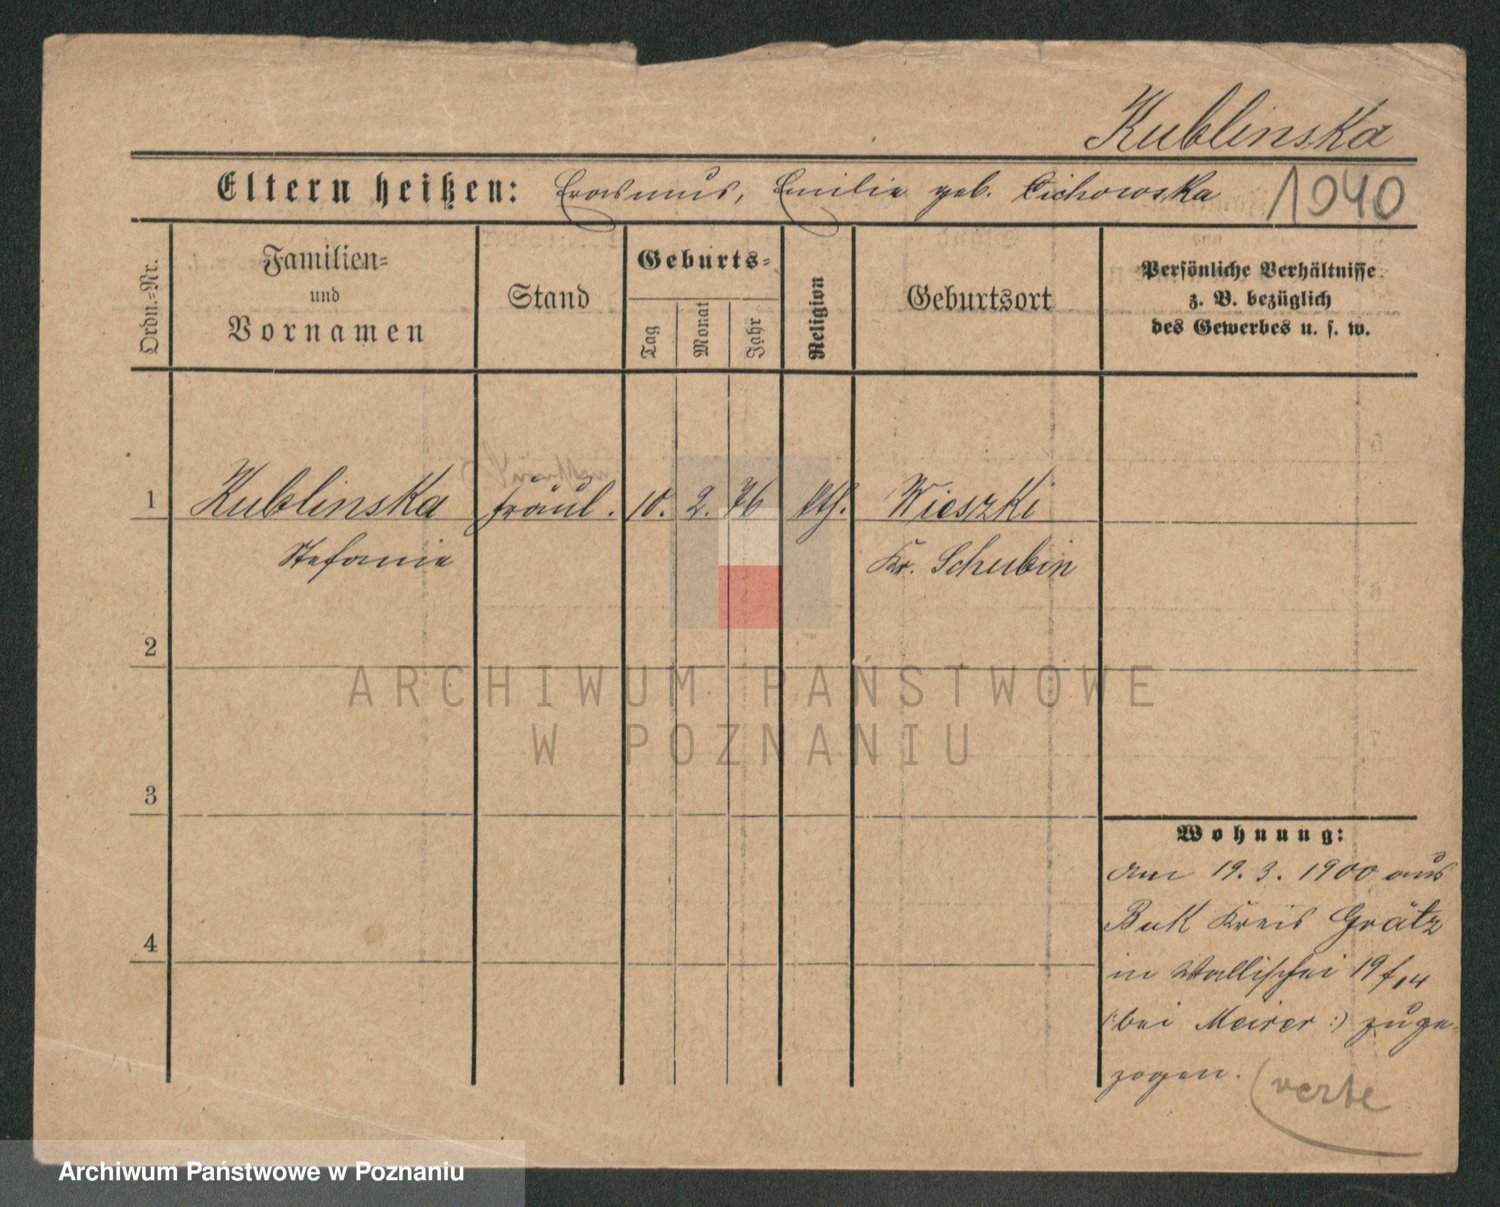 Kublinska
Eltern heißen: Erasmus, Emilie geb. Cichowska 1940
Ordn.-Nr.
Familien-
und
Vornamen
Stand
Geburts-
Tag
Monat
Jahr
Religion
Geburtsort
Persönliche Verhältnisse
z. B. bezüglich
des Gewerbes u. s. w.
1 Kublinska Fräul. 10. 2. 76 kth. Wieszki
Stefanie Kr. Schubin
2
ARCHIWUM PAŃSTWOWE
W POZNANIU
3
Wohnung:
Am 19. 3. 1900 aus
Buk Kreis Grätz
in Wallischei 19
(: bei Meirer :) zuge-
zogen.
(verte
4
Archiwum Państwowe w Poznaniu